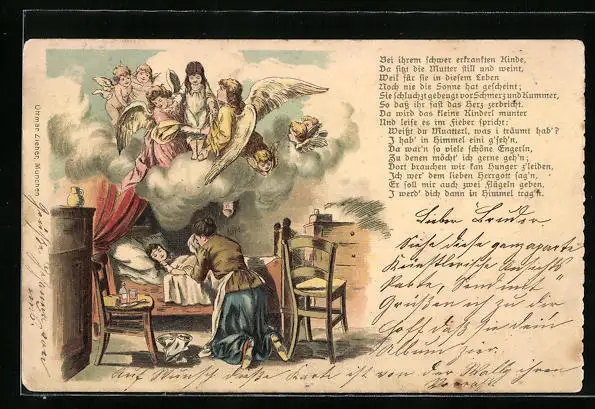 Bei ihrem schwer erkrankten Kinde,
Da sitzt die Mutter still und weint,
Weil für sie in diesem Leben
Noch nie die Sonne hat gescheint;
Sie schluchzt gebeugt vor Schmerz und Kummer,
So daß ihr fast das Herz zerbricht.
Da wird das kleine Kinderl munter
Und leise es im Fieber spricht:
Weißt du Muatterl, was i träumt hab'?
I hab' in Himmel eini g'seh'n,
Da war'n so viele schöne Engerln,
Zu denen möcht' ich gerne geh'n;
Dort brauchen wir kan Hunger z'leiden,
Ich wer' dem lieben Herrgott sag'n,
Er soll mir auch zwei Flügeln geben,
I werd' dich dann in Himmel trag'n.
Ottmar Zieher, München
Lieber Bruder.
Diese
Künstlerische Ansichts
Karte, sendet
Grüßen ich zu der
hoff daß sie dein
Album hier.
Auf Wunsch diese Karte ist von der Wally ihren